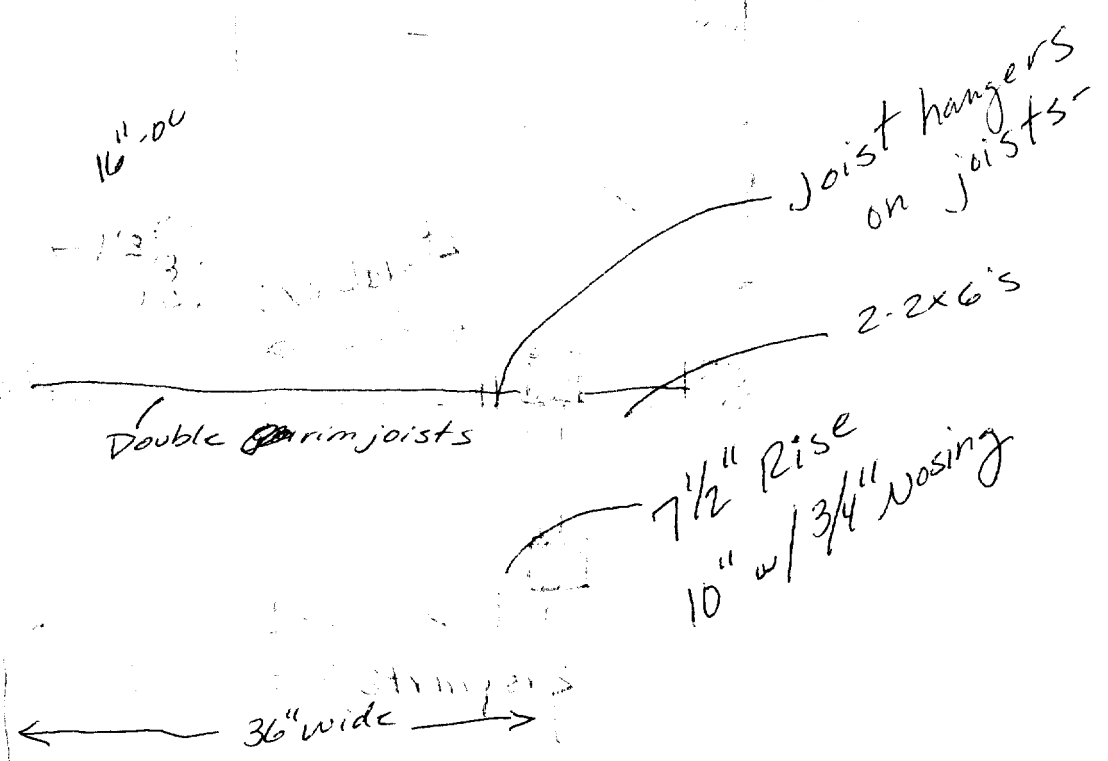 16" -OC
Joist hangers
on joists
2-2x6's
Double rim joists
7 1/2" Rise
10" w/ 3/4" Nosing
36" wide